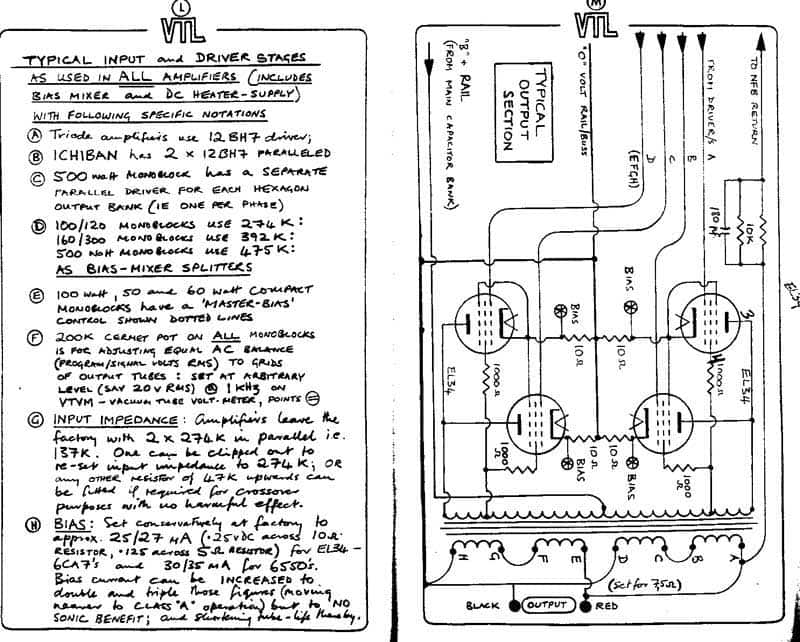 L
VTL
TYPICAL INPUT and DRIVER STAGES
AS USED IN ALL AMPLIFIERS (INCLUDES
BIAS MIXER and DC HEATER-SUPPLY)
WITH FOLLOWING SPECIFIC NOTATIONS
A Triode amplifiers use 12BH7 driver;
B ICHIBAN has 2 x 12BH7 PARALLELED
C 500 watt MONOBLOCK has a SEPARATE
PARALLEL DRIVER FOR EACH HEXAGON
OUTPUT BANK (IE ONE PER PHASE)
D 100/120 MONOBLOCKS USE 274K:
160/300 MONOBLOCKS USE 392K:
500 Watt MONOBLOCKS USE 475K:
AS BIAS-MIXER SPLITTERS
E 100 watt, 50 and 60 watt COMPACT
MONOBLOCKS have a 'MASTER-BIAS'
CONTROL SHOWN DOTTED LINES
F 200K CERMET POT ON ALL MONOBLOCKS
IS FOR ADJUSTING EQUAL AC BALANCE
(PROGRAM/SIGNAL VOLTS RMS) TO GRIDS
OF OUTPUT TUBES: SET AT ARBITRARY
LEVEL (SAY 20V RMS) @ 1KHz ON
VTVM - VACUUM TUBE VOLT-METER, POINTS
G INPUT IMPEDANCE: Amplifiers leave the
factory with 2 x 274K in parallel i.e.
137K. One can be clipped out to
re-set input impedance to 274K; OR
any OTHER resistor of 47K upwards can
be fitted if required for crossover
purposes with no harmful effect.
H BIAS: Set conservatively at factory to
approx. 25/27 MA (.25VDC across 10Ω
RESISTOR, .125 across 5Ω RESISTOR) for EL34-
6CA7's and 30/35 MA for 6550's.
Bias current can be INCREASED to
double and triple those figures (moving
nearer to CLASS "A" operation) but to NO
SONIC BENEFIT; and shortening tube-life thereby.
M
VTL
"B" + RAIL
(FROM MAIN CAPACITOR BANK)
TYPICAL
OUTPUT
SECTION
"O" VOLT RAIL/BUSS
(EFGH)
D
C
B
FROM DRIVER/S A
TO NFB RETURN
180 pf
10K
EL34
3
BIAS
BIAS
10Ω
10Ω
EL34
1000Ω
1000Ω
EL34
10Ω
10Ω
BIAS
BIAS
1000Ω
1000Ω
H
G
F
E
D
C
B
A
(Set for 7,5Ω)
BLACK
OUTPUT
RED